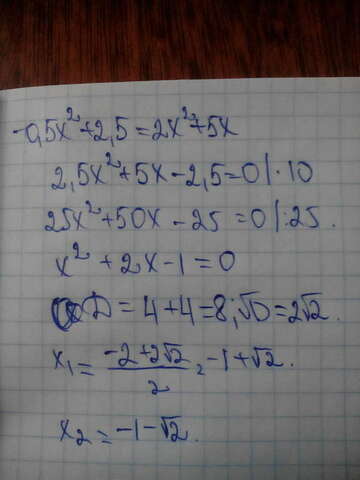 -0,5x²+2,5=2x²+5x
2,5x²+5x-2,5=0|·10
25x²+50x-25=0|:25.
x²+2x-1=0
D=4+4=8; √D=2√2.
x₁=(-2+2√2)/2=-1+√2.
x₂=-1-√2.